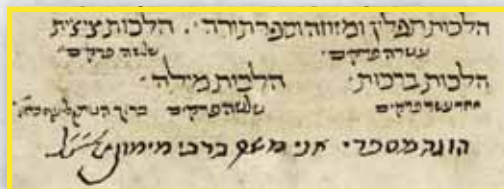 הלכות תפלין ומזוזה וספר תורה׳. הלכות ציצית
עשרה פרקים׳ שלשה פרקים׳
הלכות ברכות׳ הלכות מילה׳
אחד עשר פרקים שלשה פרקים ברוך
הוגה מספרי אני משה ברבי מימון זצ״ל